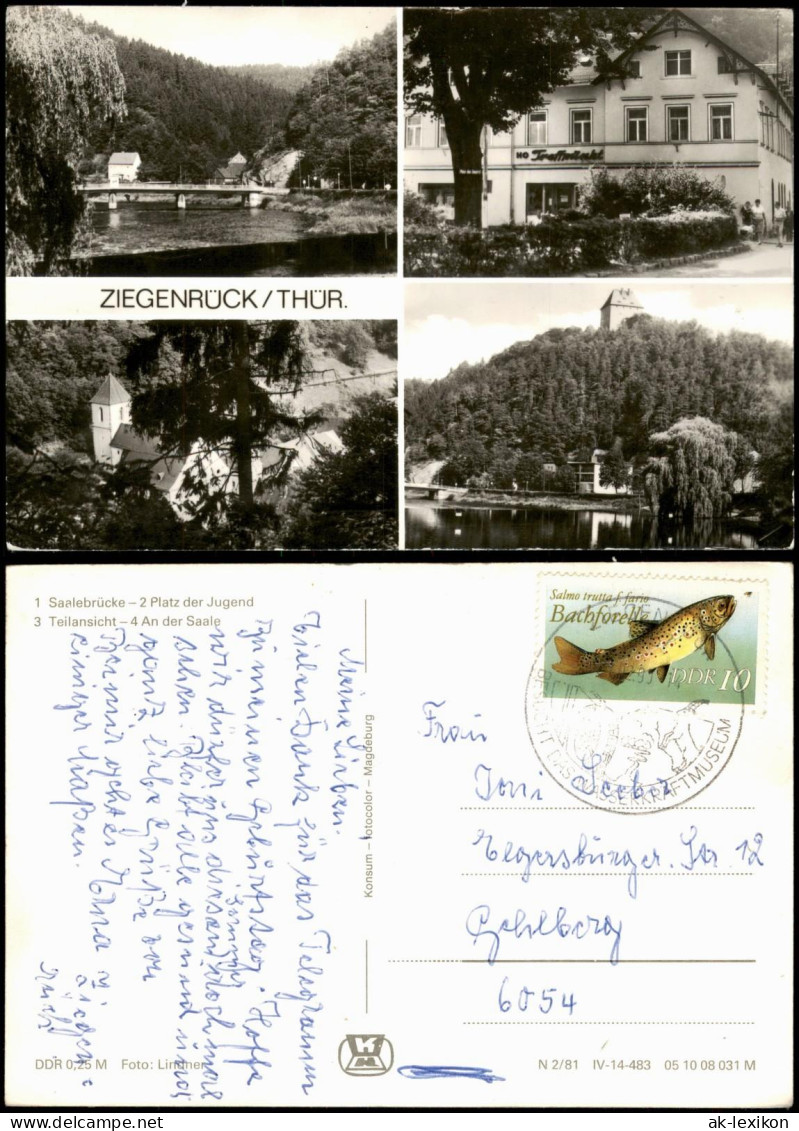 HO Treffpunkt
ZIEGENRÜCK/THÜR.
1 Saalebrücke – 2 Platz der Jugend
3 Teilansicht – 4 An der Saale
Meine Lieben.
Vielen Dank für das Telegramm
zu meinen Geburtstag. Hoffe
wir dürfen uns diesen Sommer noch mal
sehen. Bleibt alle gesund und
ganz liebe Grüße von
einiger Maßen.
Konsum – fotocolor – Magdeburg
Salmo trutta f. fario
Bachforelle
DDR 10
DAS WASSERKRAFTMUSEUM
Frau
Toni
Elgersburger. Str 12
Gehlberg
6054
DDR 0,25 M Foto: Lindner
N 2/81 IV-14-483 05 10 08 031 M
© ak-lexikon
ak-lexikon.com